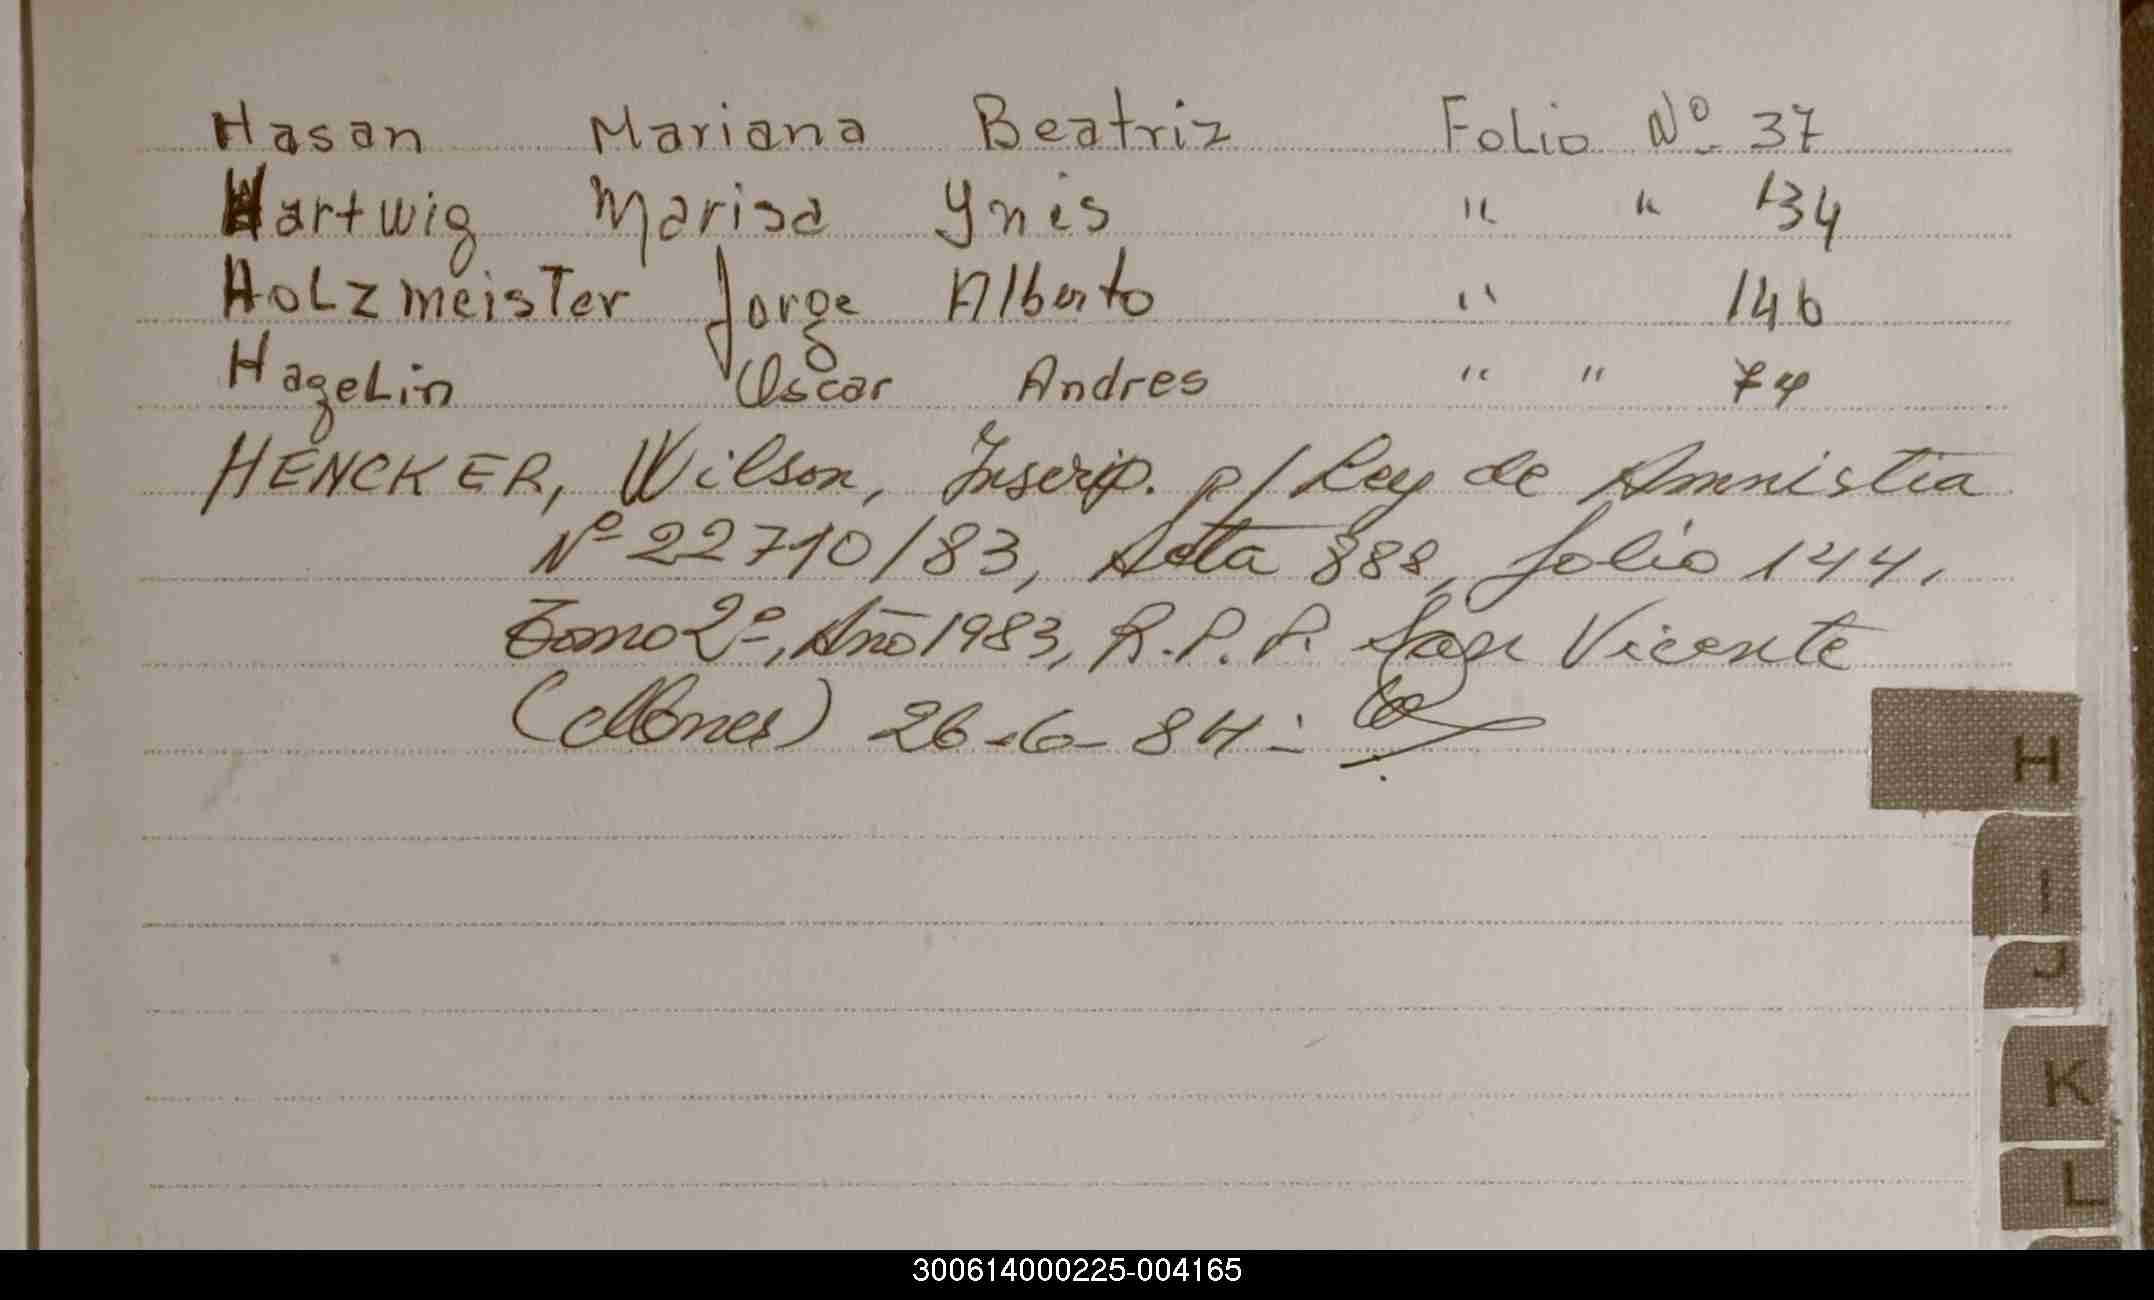 Hasan Mariana Beatriz Folio Nº 37
Hartwig Marisa Ynés " " 134
Holzmeister Jorge Alberto " 146
Hagelin Oscar Andres " " 74
HENCKER, Wilson, Inscrip. p/ Ley de Amnistia
Nº 22710/83, Acta 888, folio 144,
Tomo 2º, Año 1983, R.P.P. San Vicente
(Mones) 26-6-84:
H
I
J
K
L
300614000225-004165